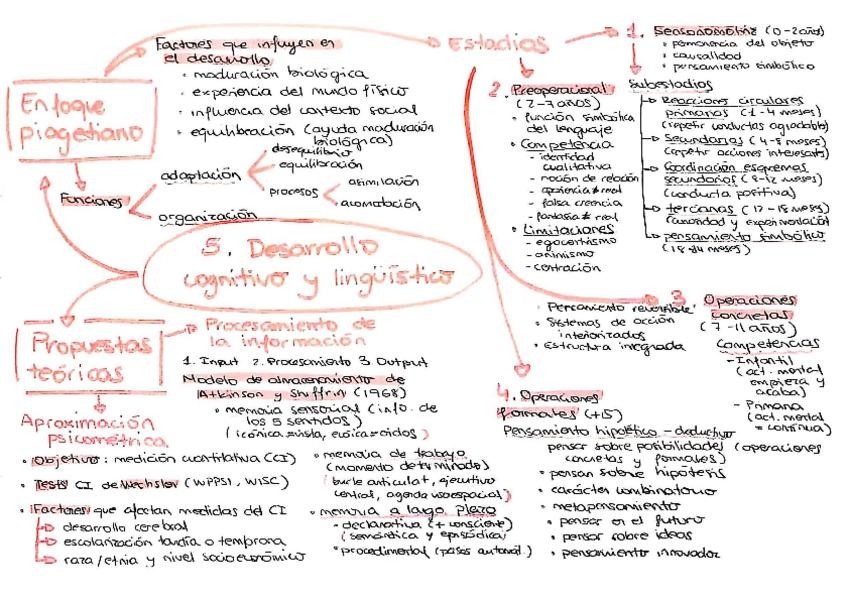 5. Desarrollo
cognitivo y lingüístico
Enfoque
piagetiano
Factores que influyen en
el desarrollo
• maduración biológica
• experiencia del mundo físico
• influencia del contexto social
• equilibración (ayuda maduración
biológica)
Funciones
adaptación
desequilibrio
equilibración
procesos
asimilación
acomodación
organización
Estadios
1. Sensoriomotriz (0-2 años)
• permanencia del objeto
• causalidad
• pensamiento simbólico
Subestadios
Reacciones circulares
primarias (1-4 meses)
(repetir conductas agradables)
Secundarias (4-8 meses)
(repetir acciones interesantes)
Coordinación esquemas
secundarios (8-12 meses)
(conducta positiva)
terciarias (12-18 meses)
(curiosidad y experimentación)
pensamiento simbólico
(18-24 meses)
2. Preoperacional
(2-7 años)
• función simbólica
del lenguaje
• Competencia
- identidad
cualitativa
- noción de relación
- apariencia ≠ real
- falsa creencia
- fantasía ≠ real
• Limitaciones
- egocentrismo
- animismo
- centración
3 Operaciones
concretas
(7-11 años)
• Pensamiento reversible
• Sistemas de acción
interiorizados
• Estructura integrada
Competencias
- Infantil
(act. mental
empieza y
acaba)
- Primaria
(act. mental
continua)
4. Operaciones
formales (+15)
Pensamiento hipotético-deductivo
pensar sobre posibilidades (operaciones
concretas y formales)
• pensar sobre hipótesis
• carácter combinatorio
• metapensamiento
• pensar en el futuro
• pensar sobre ideas
• pensamiento innovador
Propuestas
teóricas
Procesamiento de
la información
1. Input 2. Procesamiento 3. Output
Modelo de almacenamiento de
Atkinson y Shiffrin (1968)
• memoria sensorial (info. de
los 5 sentidos)
(icónica=vista, ecoica=oídos)
• memoria de trabajo
(momento determinado)
(bucle articulat, ejecutivo
central, agenda visoespacial)
• memoria a largo plazo
• declarativa (+ consciente)
(semántica y episódica)
• procedimental (pasos automat.)
Aproximación
psicométrica
• Objetivo: medición cuantitativa (CI)
• Tests CI de Wechsler (WPPSI, WISC)
• Factores que afectan medidas del CI
desarrollo cerebral
escolarización tardía o temprana
raza/etnia y nivel socioeconómico